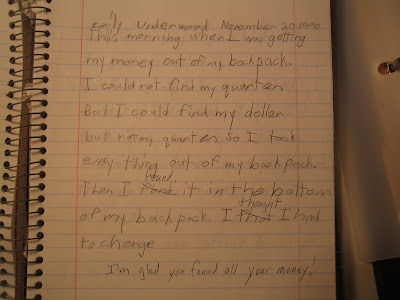 Emily Underwood November 20, 1990
This morning when I was getting
my money out of my backpack.
I could not find my quarter
But I could find my dollar
but not my quarter so I took
every thing out of my backpack.
Then I found it in the bottom
of my backpack. I thought I had
to change
I'm glad you found all your money!